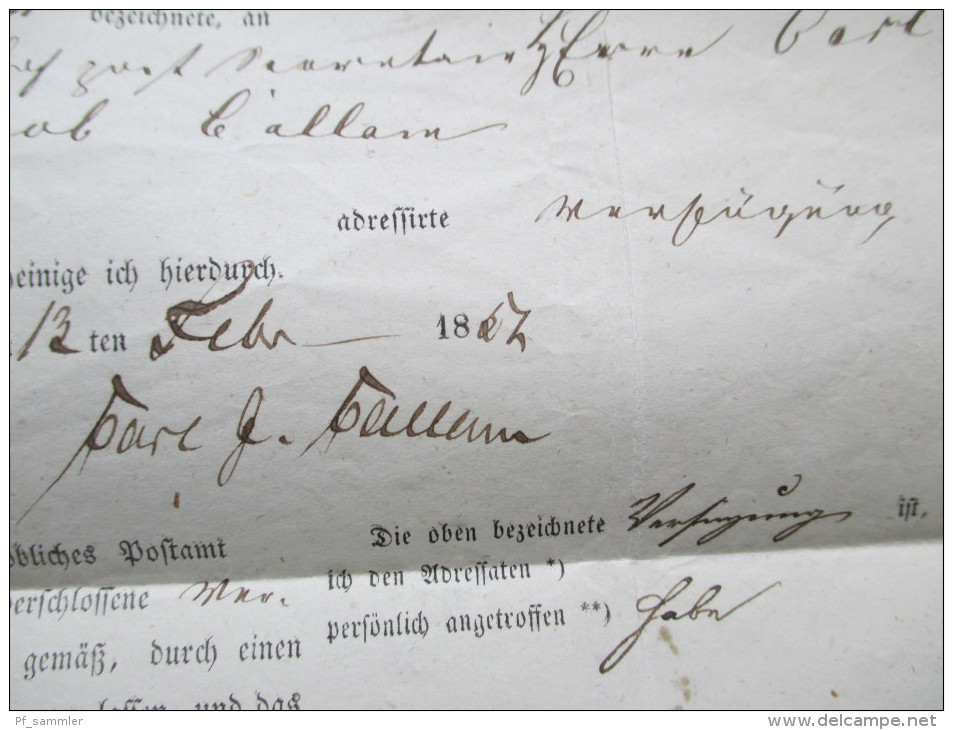 bezeichnete, an
post Secretair Herrn Carl
ob Callam
adressirte Verfügung
einige ich hierdurch.
12 ten Febr 1862
Carl J. Callam
bliches Postamt
erschlossene Ver-
gemäß, durch einen
lassen, und das
Die oben bezeichnete Verfügung ist,
ich den Adressaten *)
persönlich angetroffen **) habe
Pf_sammler
www.delcampe.net